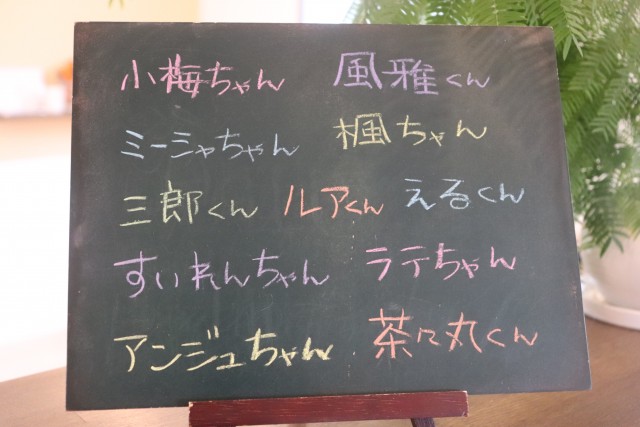 小梅ちゃん 風雅くん
ミーシャちゃん 楓ちゃん
三郎くん ルアくん えるくん
すいれんちゃん ラテちゃん
アンジュちゃん 茶々丸くん